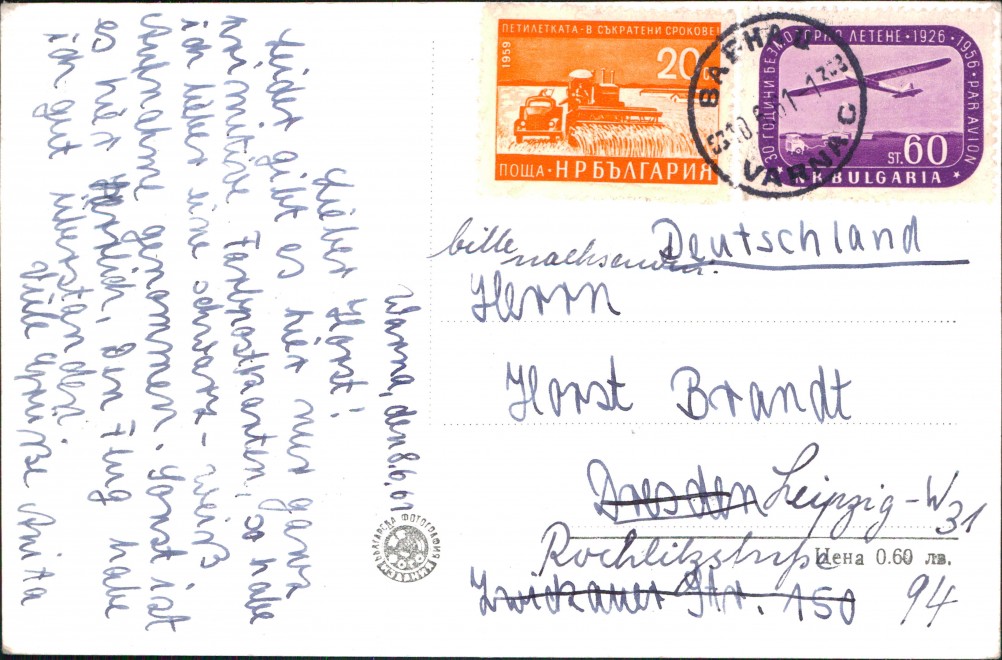 Warna, den 8.6.61
Lieber Horst!
Leider gibt es hier nur ganz
primitive Farbpostkarten, so habe
ich lieber eine schwarz-weiß
Aufnahme genommen. Sonst ist
es hier herrlich, den Flug habe
ich gut überstanden.
Viele Grüße Anita
ПЕТИЛЕТКАТА-В СЪКРАТЕНИ СРОКОВЕ!
1959
20
ПОЩА·НРБЪЛГАРИЯ
30 ГОДИНИ БЕЗМОТОРНО ЛЕТЕНЕ·1926·1956·PAR AVION
ST. 60
N.R. BULGARIA
ВАРНА
VARNA C
Deutschland
bitte nachsenden.
Herrn
Horst Brandt
Dresden Leipzig-W 31
Rochlitzstraße
Цена 0.60 лв.
Zwickauer Str. 150 94
БЪЛГАРСКА ФОТОГРАФИЯ